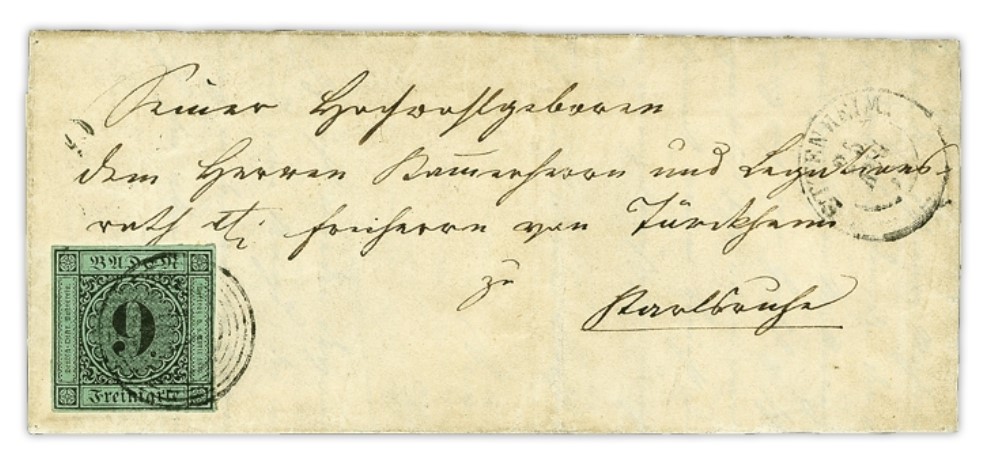 Seiner Hochwohlgeboren
dem Herren Kammerherrn und Legations-
rath Freiherrn von Türckheim
zu
Karlsruhe
BADEN
9.
Freimarke
ETTENHEIM.
25